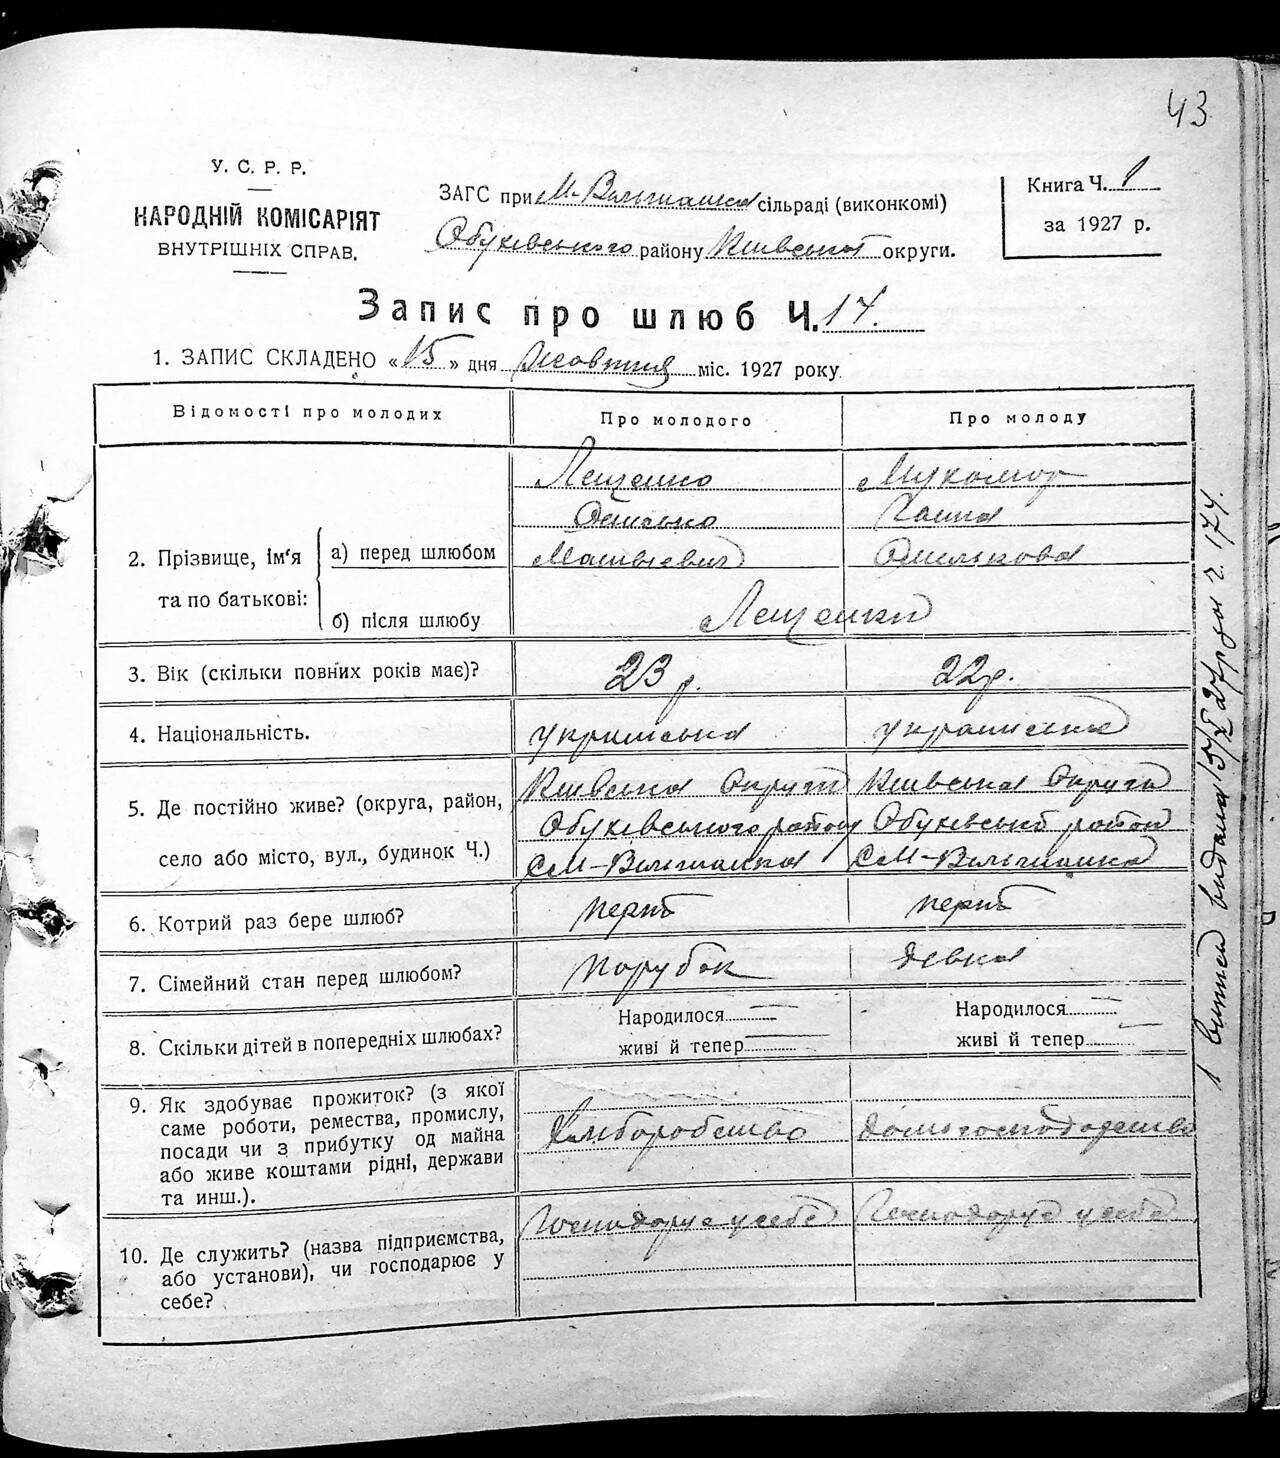 43
У. С. Р. Р.
НАРОДНІЙ КОМІСАРІЯТ
ВНУТРІШНІХ СПРАВ.
ЗАГС при М-Вільшанка сільраді (виконкомі)
Обухівського району Київської округи.
Книга Ч. 1
за 1927 р.
Запис про шлюб Ч. 14.
1. ЗАПИС СКЛАДЕНО «15» дня жовтня міс. 1927 року
Відомості про молодих
Про молодого
Про молоду
2. Прізвище, ім'я
та по батькові:
а) перед шлюбом
б) після шлюбу
Лещенко
Мухомор
Ганна
Матвієвич
Омелькова
Лещенки
3. Вік (скільки повних років має)?
23 р.
22 р.
4. Національність.
українська
українська
5. Де постійно живе? (округа, район,
село або місто, вул., будинок Ч.)
Київська Округа
Обухівського району
С М-Вільшанка
Київська Округа
Обухівський район
С М-Вільшанка
6. Котрий раз бере шлюб?
перший
перший
7. Сімейний стан перед шлюбом?
парубок
дівка
8. Скільки дітей в попередніх шлюбах?
Народилося —
живі й тепер —
Народилося —
живі й тепер —
9. Як здобуває прожиток? (з якої
саме роботи, ремества, промислу,
посади чи з прибутку од майна
або живе коштами рідні, держави
та инш.).
Хліборобство
Домогосподарство
10. Де служить? (назва підприємства,
або установи), чи господарює у
себе?
Господарує у себе
Господарує у себе
1 витяг видана 15/X 27 р. за г. 174.